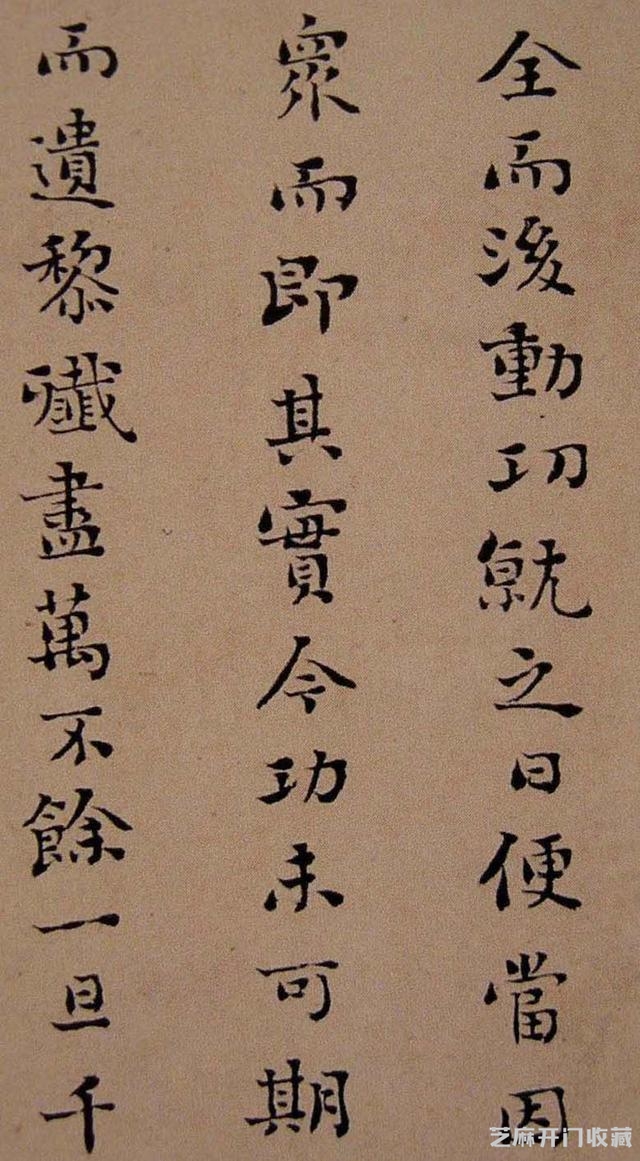 全而後動功就之日便當因
衆而即其實今功未可期
而遺黎殲盡萬不餘一且千
芝麻开门收藏